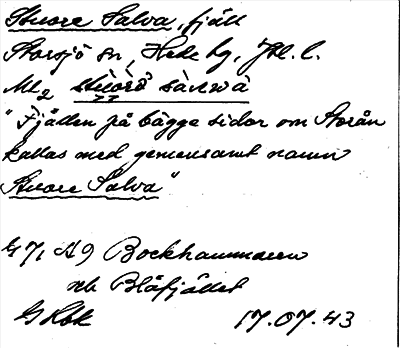 Stuore Salva, fjäll
Storsjö sn, Hede hg, Jtl. l.
Ml₂ stùoŕō sàlwà
"Fjällen på bägge sidor om Storån
kallas med gemensamt namn
Stuore Salva"
G 7, A9 Bockhammaren
och Blåfjället
17.07.43